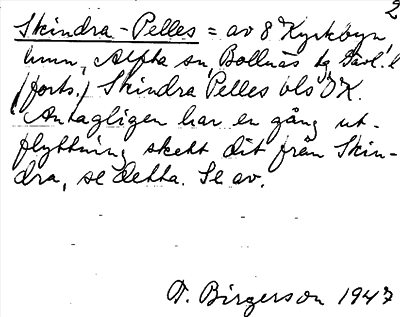 2
Skindra-Pelles = av 8 Kyrkbyn
hmn, Alfta sn, Bollnäs tg Gävl. l
(forts.) Skindra Pelles bls ÖK.
Antagligen har en gång ut-
flyttning skett dit från Skin-
dra, se detta. Se av.
O. Birgerson 1947